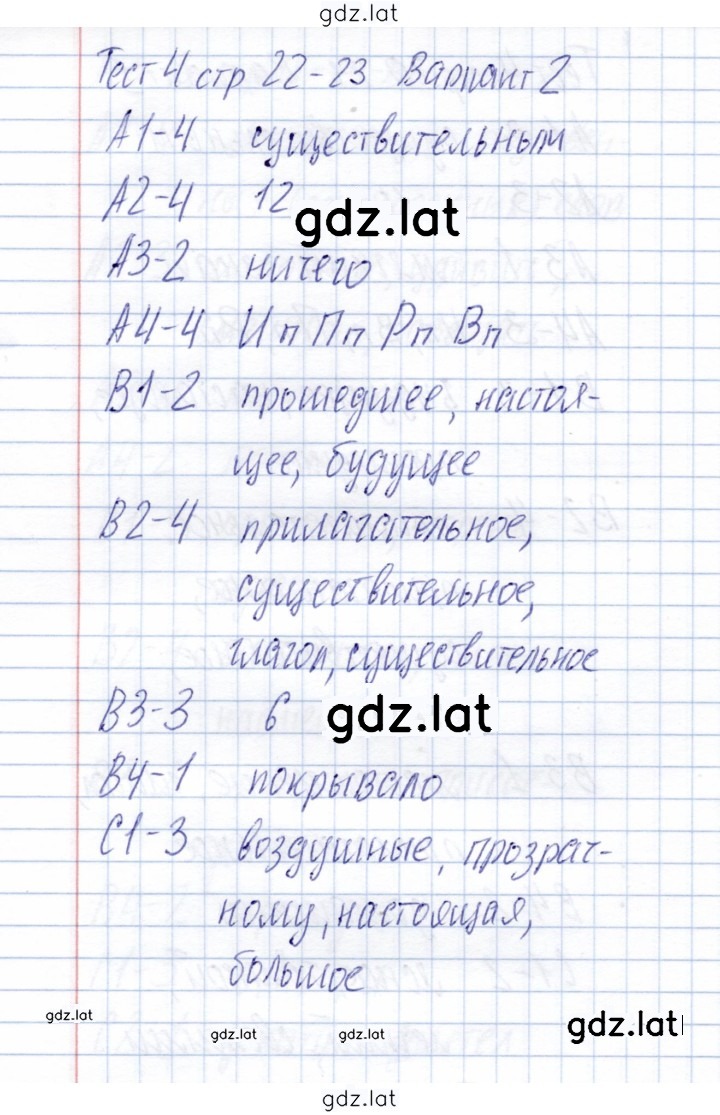 gdz.lat
Тест 4 стр 22-23 Вариант 2
А1-4 существительным
А2-4 12
gdz.lat
А3-2 ничего
А4-4 Ип Пп Рп Вп
В1-2 прошедшее, настоя-
щее, будущее
В2-4 прилагательное,
существительное,
глагол, существительное
В3-3 6 gdz.lat
В4-1 покрывало
С1-3 воздушные, прозрач-
ному, настоящая,
большое
gdz.lat
gdz.lat gdz.lat gdz.lat
gdz.lat